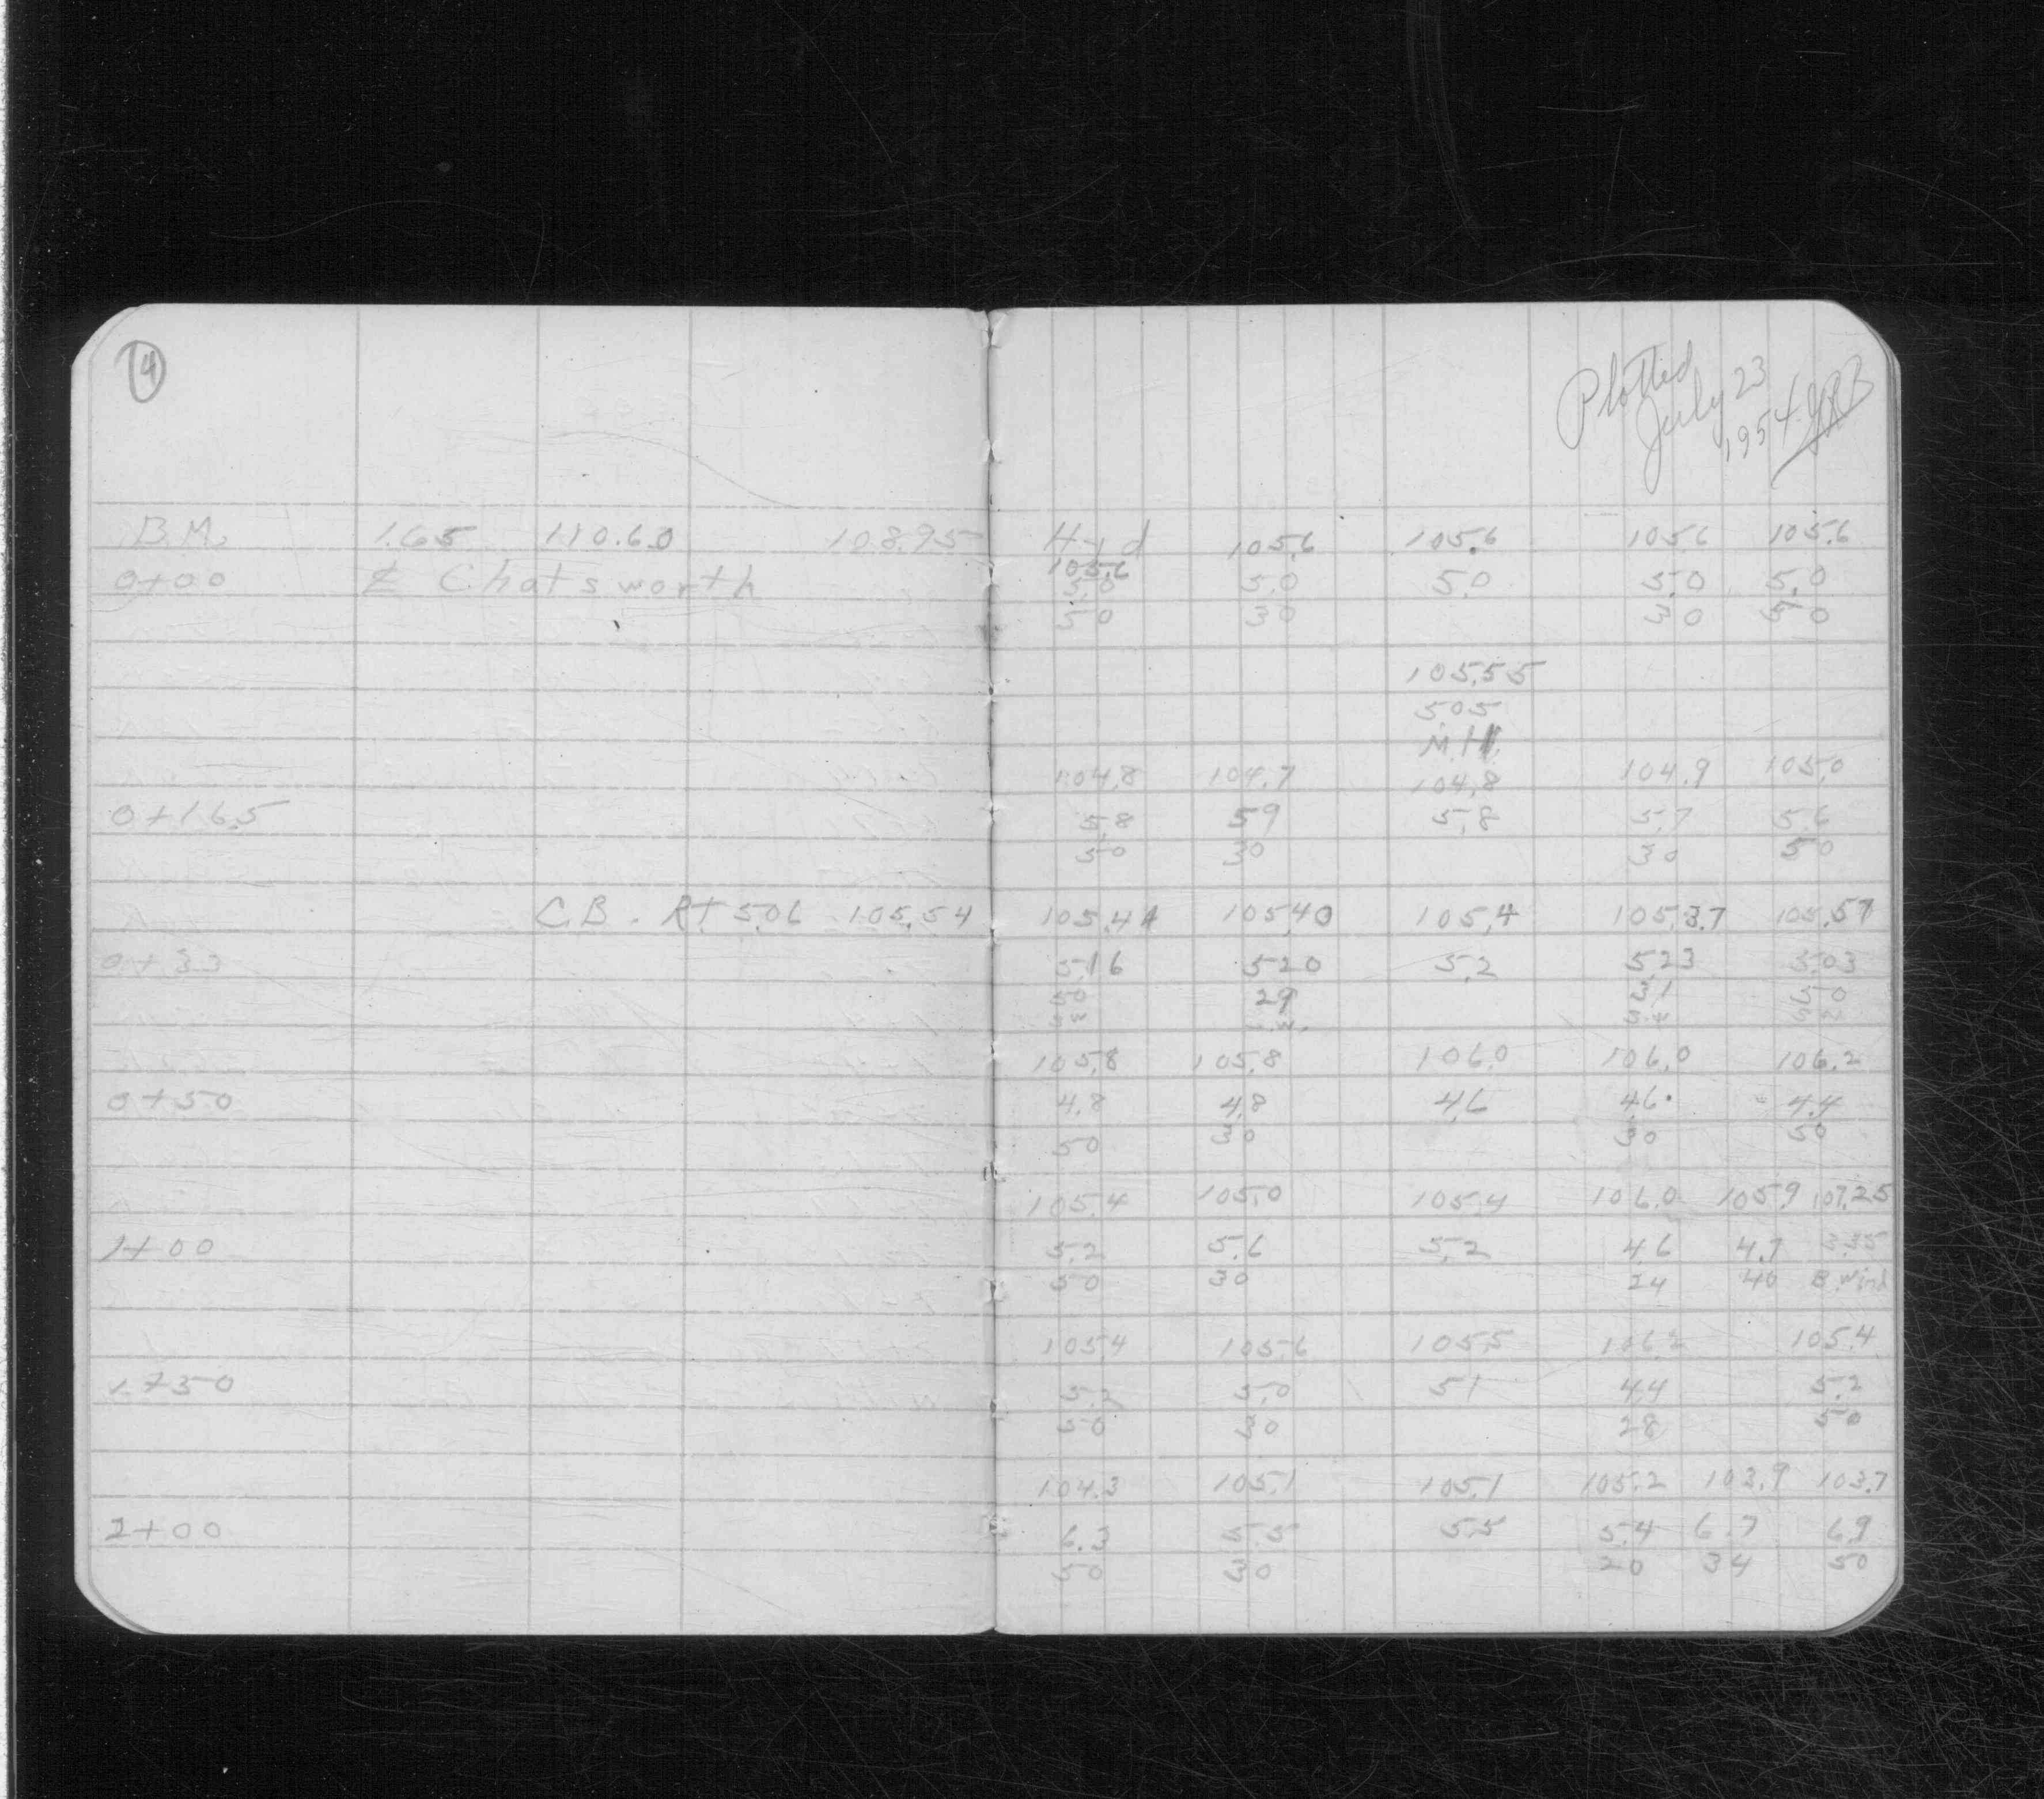 4
Plotted
July 23
1954
B.M. 1.65 110.60 108.95 Hyd 105.6 105.6 105.6 105.6
105.6
0+00 ₵ Chatsworth 5.0 5.0 5.0 5.0 5.0
50 30 30 50
105.55
5.05
M.H.
104.8 104.7 104.8 104.9 105.0
0+16.5 5.8 5.9 5.8 5.7 5.6
50 30 30 50
C.B. Rt 5.06 105.54 105.44 105.40 105.4 105.37 105.57
0+33 5.16 5.20 5.2 5.23 5.03
50 29 31 50
105.8 105.8 106.0 106.0 106.2
0+50 4.8 4.8 4.6 4.6 4.4
50 30 30 50
105.4 105.0 105.4 106.0 105.9 107.25
1+00 5.2 5.6 5.2 4.6 4.7 3.35
50 30 24 40 B. Wind
105.4 105.6 105.5 106.2 105.4
1+50 5.2 5.0 5.1 4.4 5.2
50 30 28 50
104.3 105.1 105.1 105.2 103.9 103.7
2+00 6.3 5.5 5.5 5.4 6.7 6.9
50 30 20 34 50